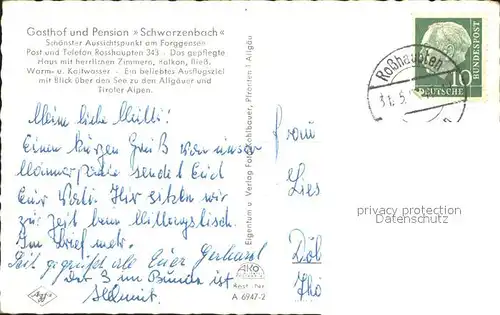 Gasthof und Pension »Schwarzenbach«
Schönster Aussichtspunkt am Forggensee
Post und Telefon Rosshaupten 343 - Das gepflegte
Haus mit herrlichen Zimmern, Balkon, fließ.
Warm- u. Kaltwasser - Ein beliebtes Ausflugsziel
mit Blick über den See zu den Allgäuer und
Tiroler Alpen.
Meine liebe Mutti!
Einen kurzen Gruß von unser
Männerpartie sendet Euch
Euer Vati. Wir sitzen wir
zur Zeit beim Mittagstisch.
Im Brief mehr.
Seit gegrüßt alle Euer Gerhard
Der 3. im Bunde ist
Helmut.
Agfa
Eigentum u. Verlag Foto Kohlbauer, Pfronten i. Allgäu
AKO
Best.-Nr.
A 6947-2
Frau
Lies
Döl
Thü
Roßhaupten
31.5.
10
DEUTSCHE
BUNDESPOST
privacy protection
Datenschutz